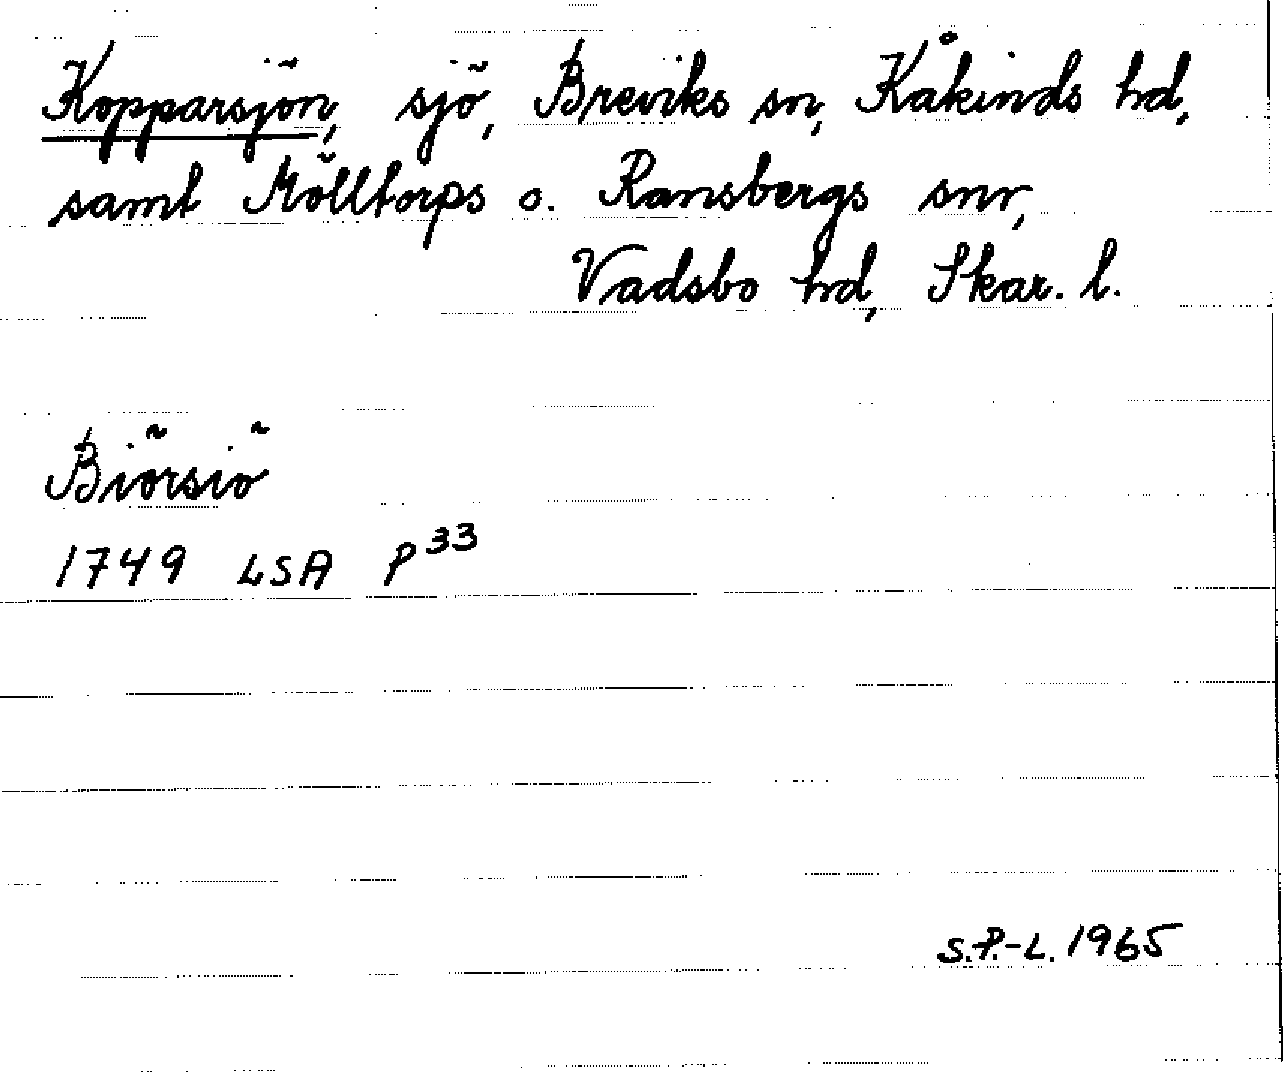 Kopparsjön, sjö, Breviks sn, Kåkinds hd,
samt Mölltorps o. Ransbergs snr,
Vadsbo hd, Skar. l.
Biörsiö
1749 LSA P33
S.P.-L. 1965